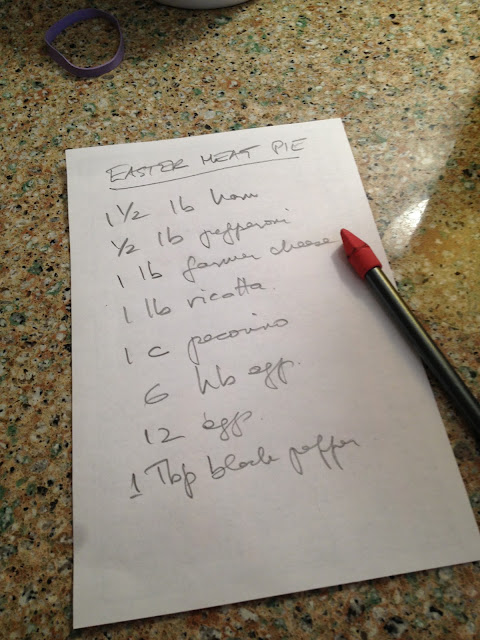 EASTER MEAT PIE
1 1/2 lb ham
1/2 lb pepperoni
1 lb farmer cheese
1 lb ricotta
1 c pecorino
6 hb eggs.
12 eggs.
1 Tbp black pepper